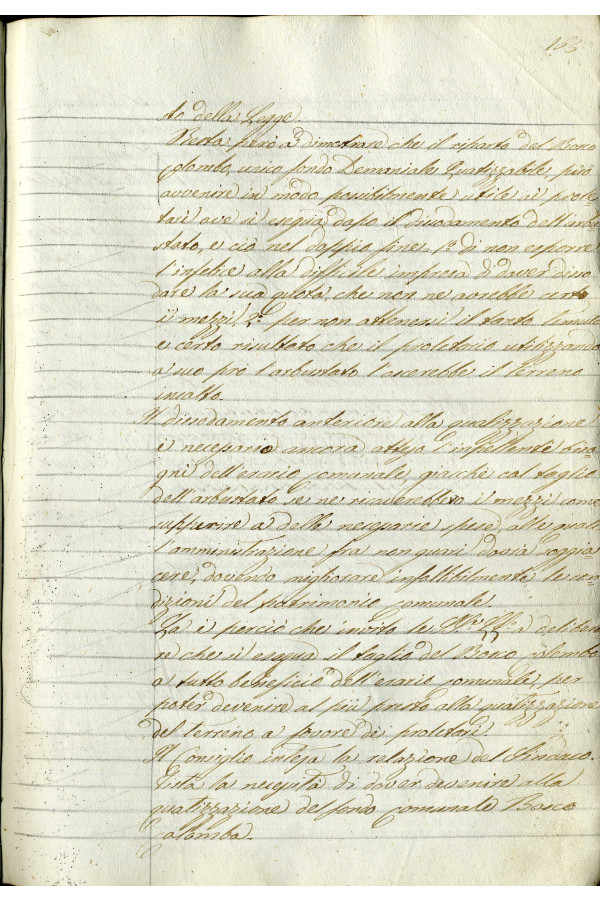 155
to della Legge.
Resta però a dimostrare che il riparto del Bosco
Colombo, unico fondo Demaniale Quatizzabile, può
avvenire in modo possibilmente utile ai prole
tari ove si esegua dopo il dissodamento dell'arbu
stato, e ciò nel doppio fine 1º di non esporre
l'infelice alla difficile impresa di dover disso
dare la sua quota, che non ne avrebbe certo
i mezzi, 2º per non attenersi il tanto temuto
e certo risultato che il proletario utilizzando
a suo prò l'arbustato lascerebbe il terreno
incolto.
Il dissodamento anteriore alla quatizzazione
è necessario ancora atteso l'impellente biso
gni dell'erario Comunale, giacché col taglio
dell'arbustato se ne riceverebbero i mezzi come
supperire a delle necessarie spese, alle quali
l'amministrazione fra non guari dovrà soggia
cere, dovendo migliorare infallibilmente le con
dizioni del patrimonio comunale.
Ed è perciò che invito le delibera
re che si esegua il taglio del Bosco Colombo
a tutto beneficio dell'erario comunale, per
poter devenire al più presto alla quatizzazione
del terreno a favore de' proletari.
Il Consiglio intesa la relazione del Sindaco.
Vista la necessità di dover devenire alla
quatizzazione del fondo comunale Bosco
Colomba.